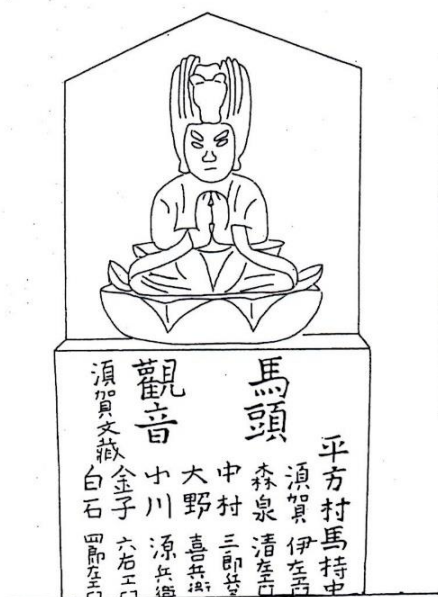 馬頭
觀音
平方村馬持中
須賀 伊左エ門
森泉 清左エ門
中村 三郎兵衛
大野 喜兵衛
小川 源兵衛
金子 六右エ門
須賀文藏
白石 四郎左エ門